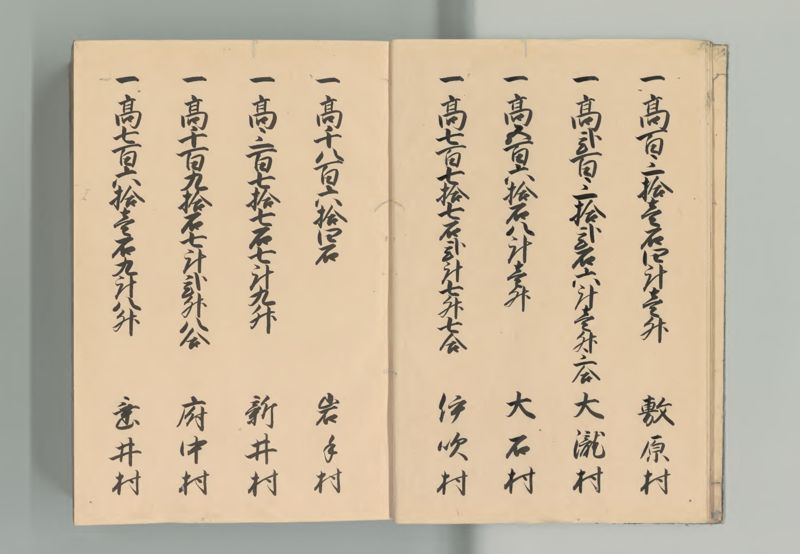 一高百三拾壱石四斗壱升 敷原村
一高弐百三拾弐石六斗壱升六合 大瀧村
一高五百六拾石八斗壱升 大石村
一高七百七拾七石弐斗七升七合 伊吹村
一高千八百六拾四石 岩手村
一高三百七拾七石七斗九升 新井村
一高千百九拾石七斗弐升八合 府中村
一高七百六拾壱石九斗八升 垂井村